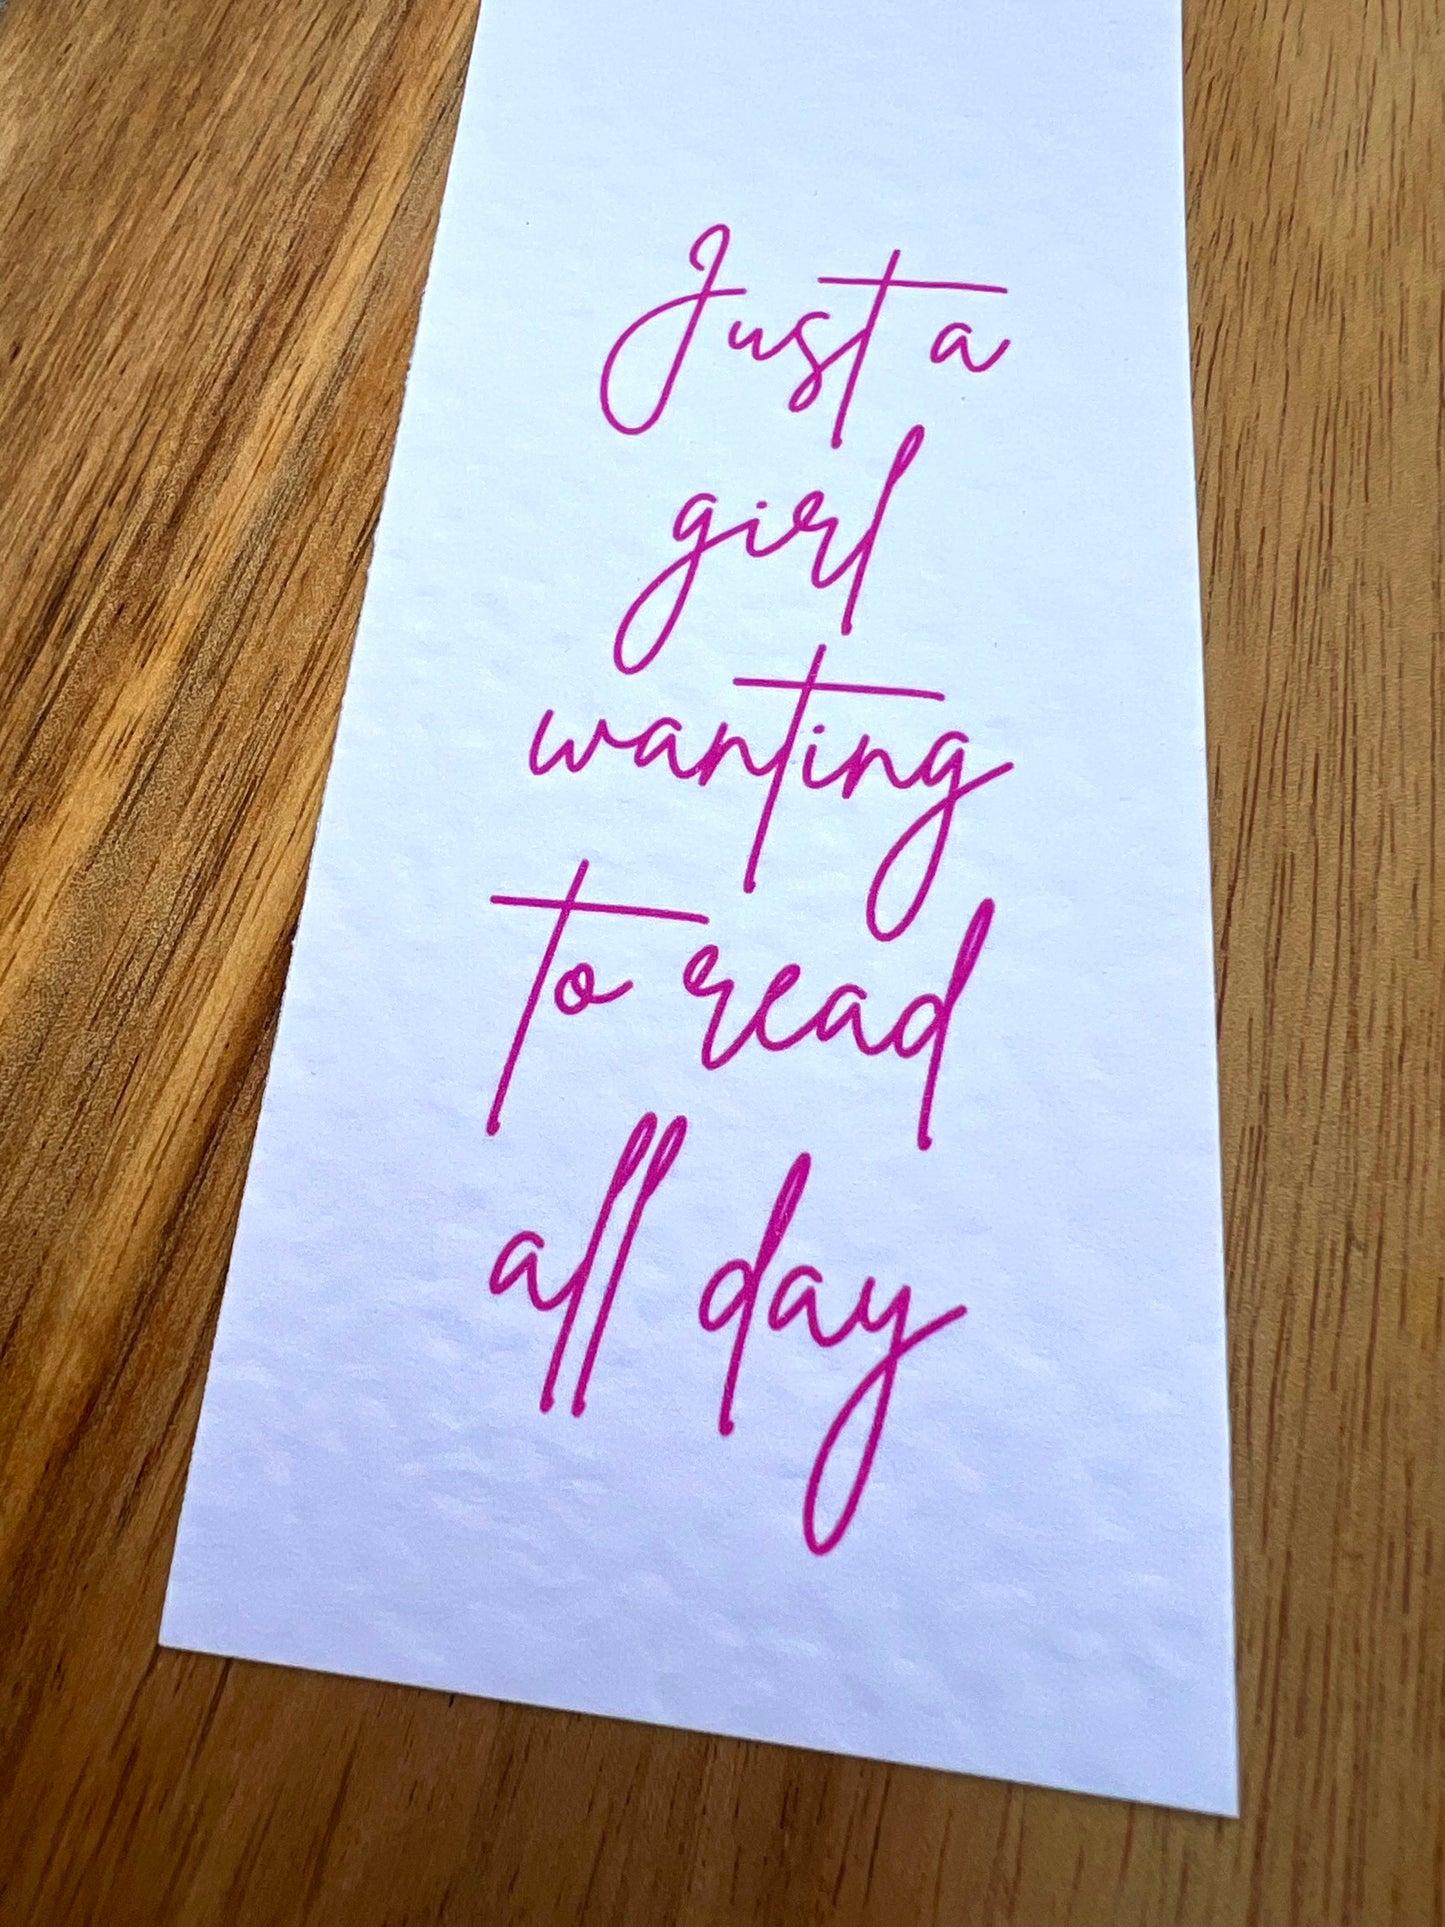 Just a
girl
wanting
to read
all day